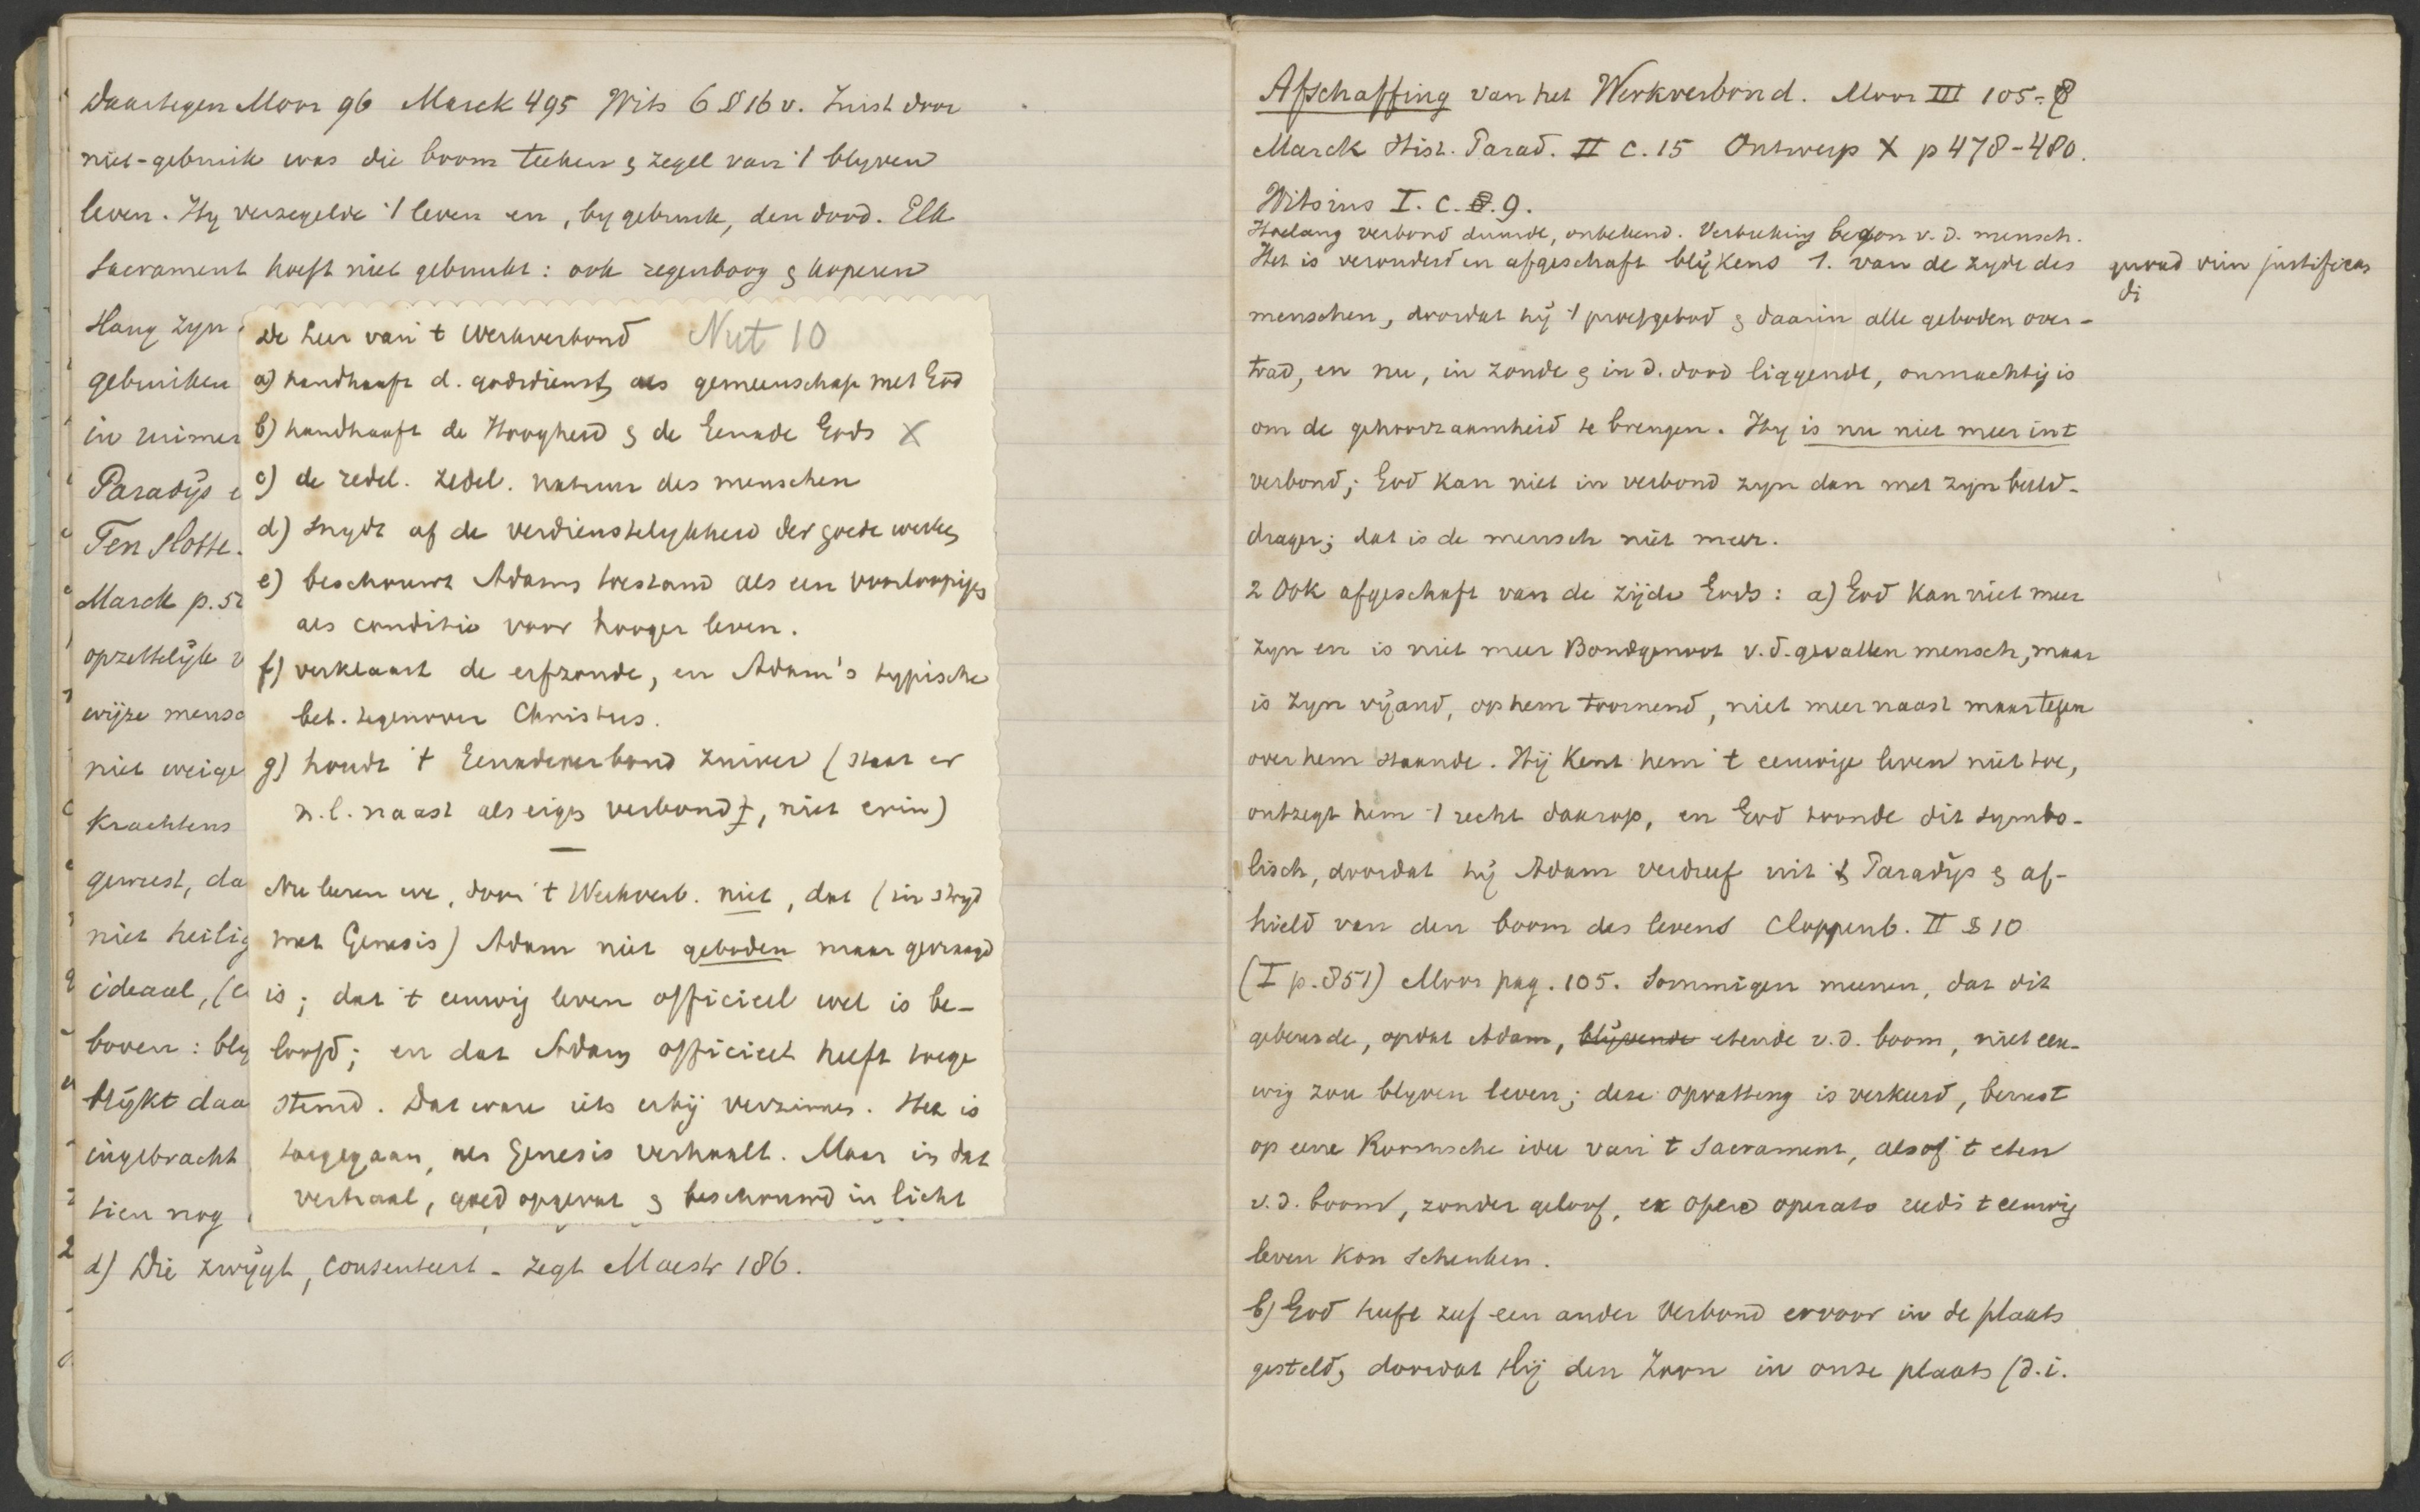 Daartegen Moor 96 Marck 495 Wits 6 § 16 v. Juist door
niet-gebruik was die boom teeken & zegel van 't blyven
leven. Hy verzegelde 't leven en, by gebruik, den dood. Elk
Sacrament hoeft niet gebruikt: ook regenboog & koperen
slang zyn
gebruiken
in ruimer
Paradijs
Ten slotte.
Marck p. 52
opzettelijk v
wijze mensc
niet weige
Krachtens
geweest, da
niet heilig
ideaal, (
boven: bly
blijkt daa
ingebracht
tien nog
d) Die zwijgt, consenteert - zegt Maestr 186.
De leer van 't Werkverbond Nut 10
a) handhaaft d. godsdienst, als gemeenschap met God
b) handhaaft de Hoogheid & de Genade Gods X
c) de redel. zedel. natuur des menschen
d) snydt af de verdienstelykheid der goede werken
e) beschouwt Adams toestand als een voorloopigen
als conditio voor hooger leven.
f) verklaart de erfzonde, en Adam's typische
bet. tegenover Christus.
g) houdt 't Genadeverbond zuiver (staat er
n.l. naast als eigen verbond, niet erin)
Nu leeren we, door 't Werkverb. niet, dat (in stryd
met Genesis) Adam niet geboden maar gevraagd
is; dat 't eeuwig leven officieel wel is be-
loofd; en dat Adam officieel heeft toege
stemd. Dat ware iets erbij verzinnen. Het is
toegegaan, als Genesis verhaalt. Maar in dat
verhaal, goed opgevat & beschouwd in licht
Afschaffing van het Werkverbond. Moor III 105-8
Marck Hist. Parad. II c. 15 Ontwerp X p 478-480.
Witsius I. c. 9.
Hoelang verbond duurde, onbekend. Verbreking begon v. d. mensch.
Het is veranderd en afgeschaft blijkens 1. van de zyde des
quoad vim justifican
di
menschen, doordat hij 't proefgebod & daarin alle geboden over-
trad, en nu, in zonde & in d. dood liggende, onmachtig is
om de gehoorzaamheid te brengen. Hy is nu niet meer in 't
verbond; God kan niet in verbond zyn dan met zyn beeld-
drager; dat is de mensch niet meer.
2 Ook afgeschaft van de zijde Gods: a) God kan niet meer
zyn en is niet meer Bondgenoot v. d. gevallen mensch, maar
is zyn vijand, op hem toornend, niet meer naast maar tegen
over hem staande. Hij kent hem 't eeuwige leven niet toe,
ontzegt hem 't recht daarop, en God toonde dit symbo-
lisch, doordat hij Adam verdreef uit 't Paradijs & af-
hield van den boom des levens Cloppenb. II § 10
(I p. 851) Moor pag. 105. Sommigen meenen, dat dit
gebeurde, opdat Adam, blijvende etende v. d. boom, niet eeu-
wig zou blyven leven; deze opvatting is verkeerd, berust
op eene Roomsche idee van 't Sacrament, alsof 't eten
v. d. boom, zonder geloof, ex opere operato reeds 't eeuwig
leven kon schenken.
b) God heeft zelf een ander Verbond ervoor in de plaats
gesteld, doordat Hij den Zoon in onze plaats (d. i.